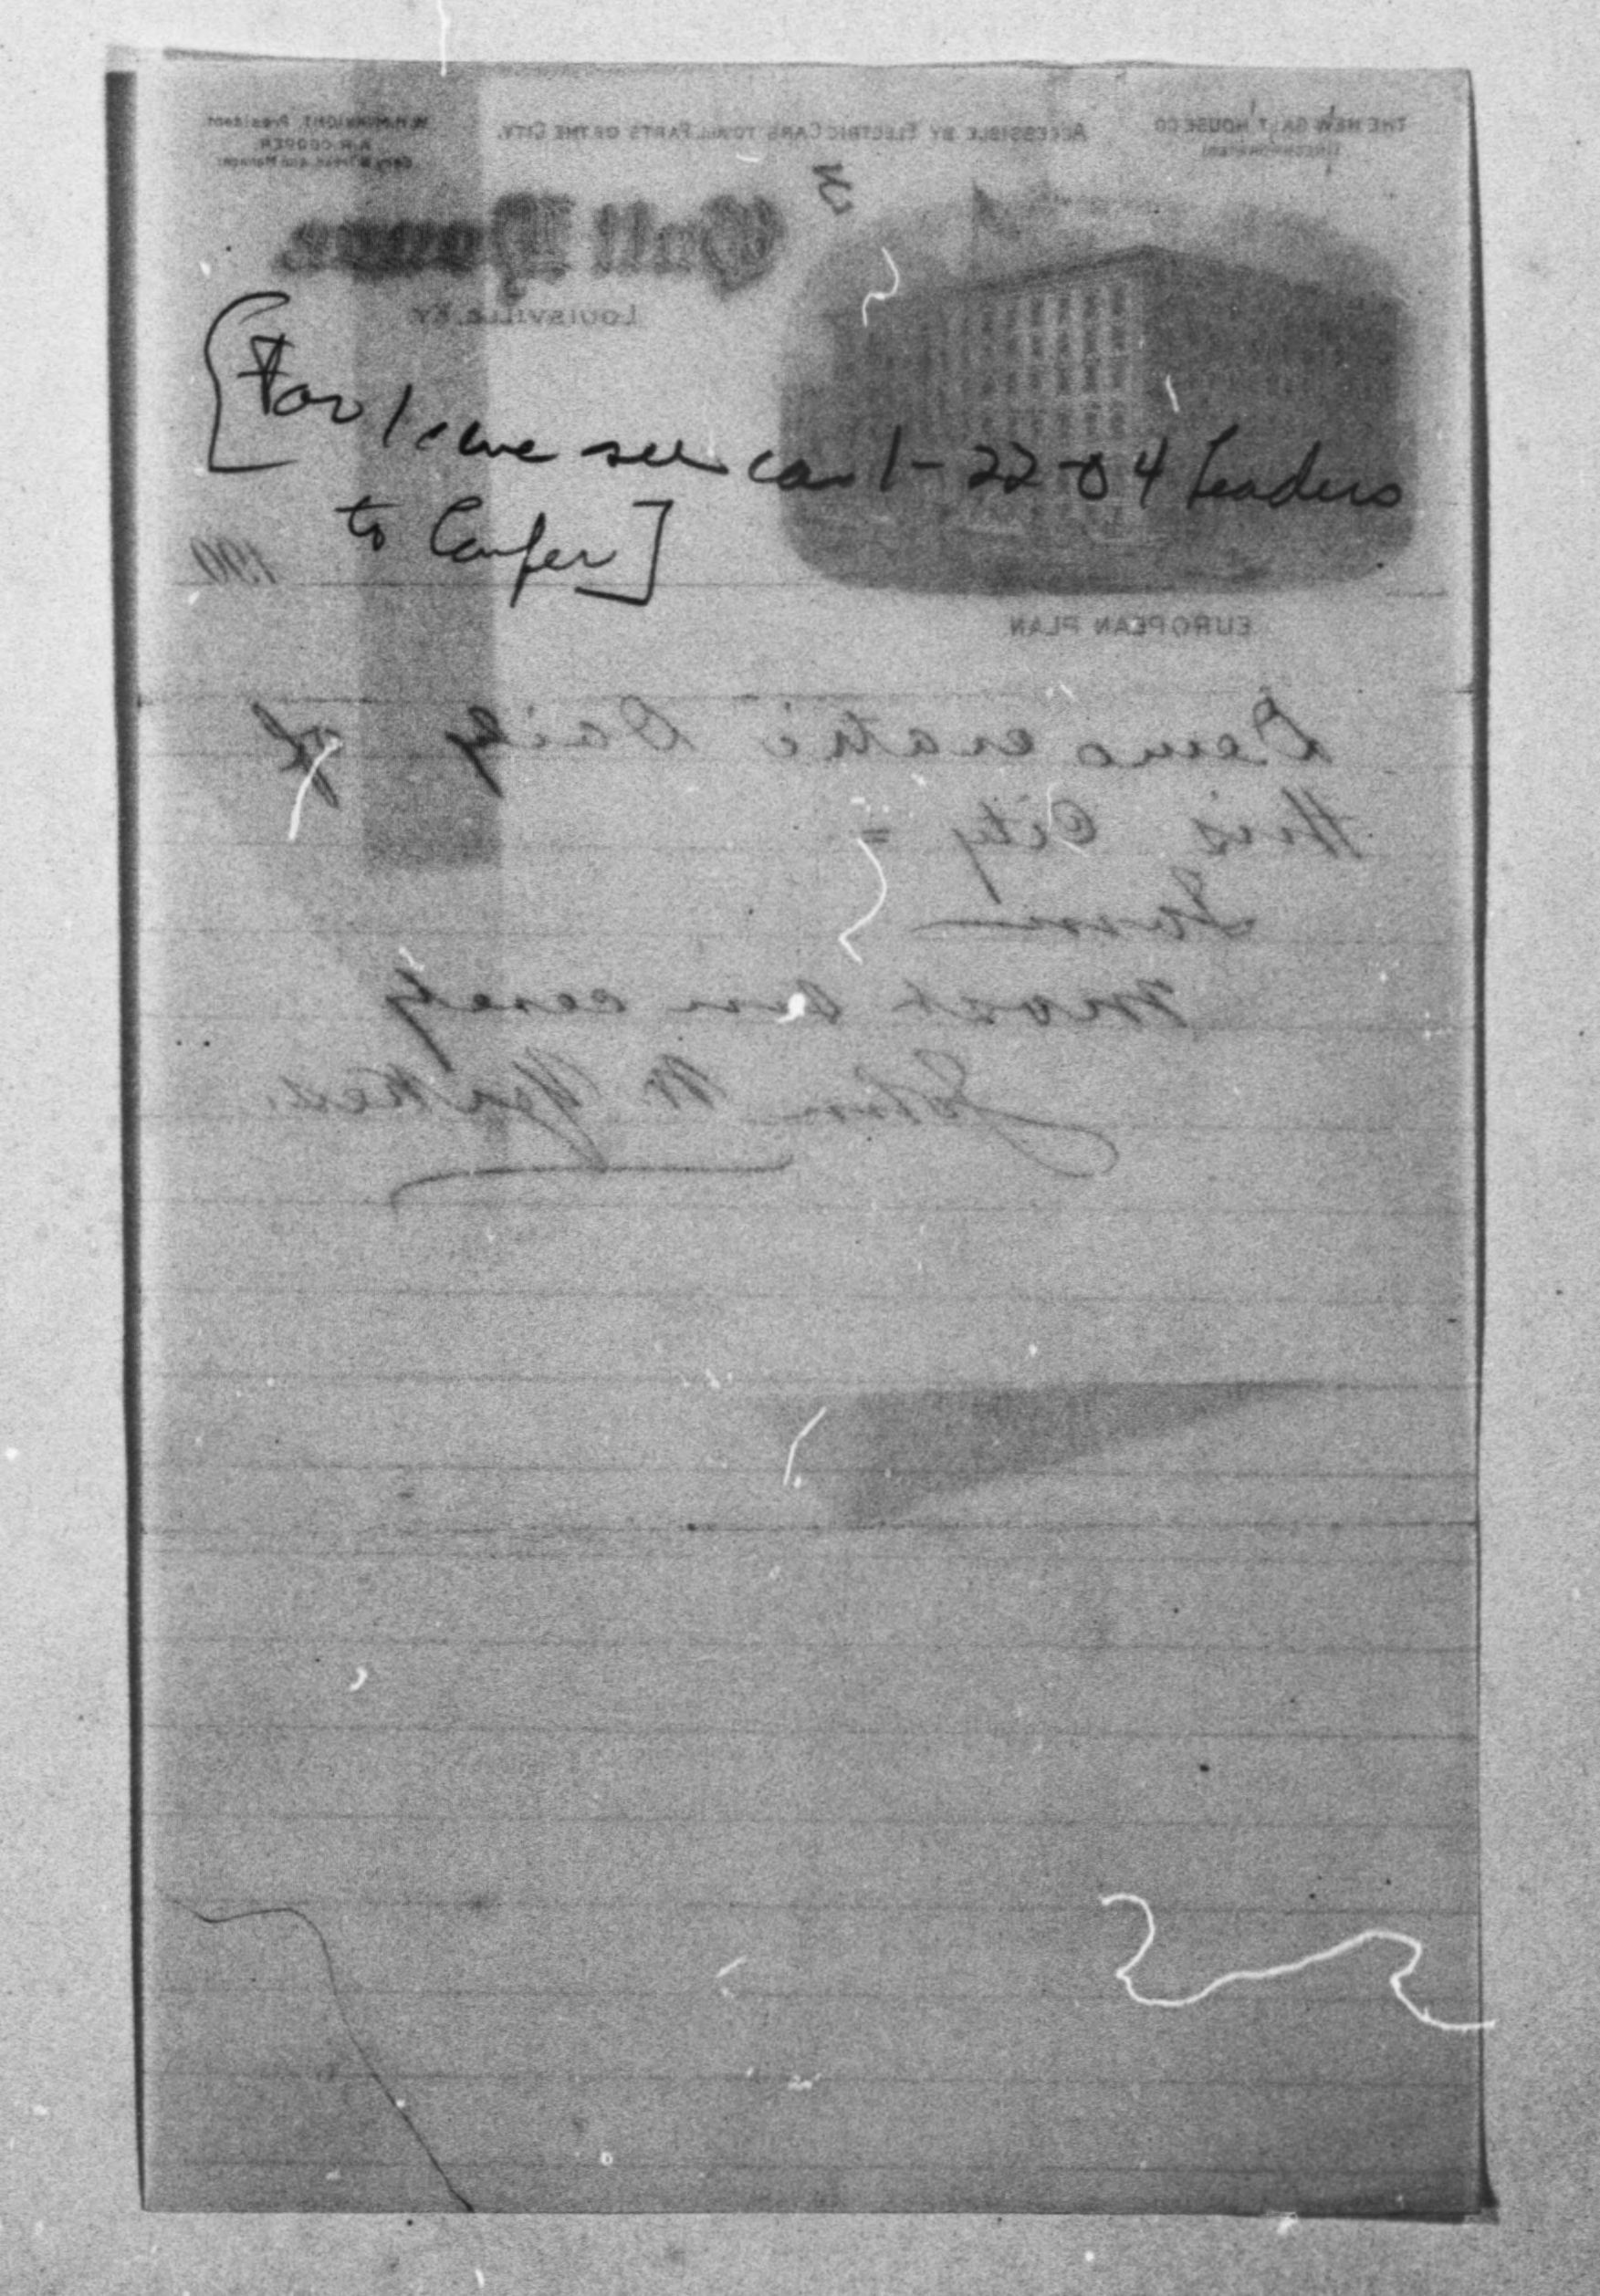 THE NEW GALT HOUSE CO
(INCORPORATED)
ACCESSIBLE BY ELECTRIC CARS TO ALL PARTS OF THE CITY.
W.H. McKNIGHT, President.
A.R. COOPER,
Sec'y & Treas. and Manager.
3
Galt House.
LOUISVILLE, KY.
[For
see
1-22-04 Leaders
to Confer]
190
EUROPEAN PLAN
Democratic Daily of
this City =
I am
Most Sincerely
John W. Yerkes.